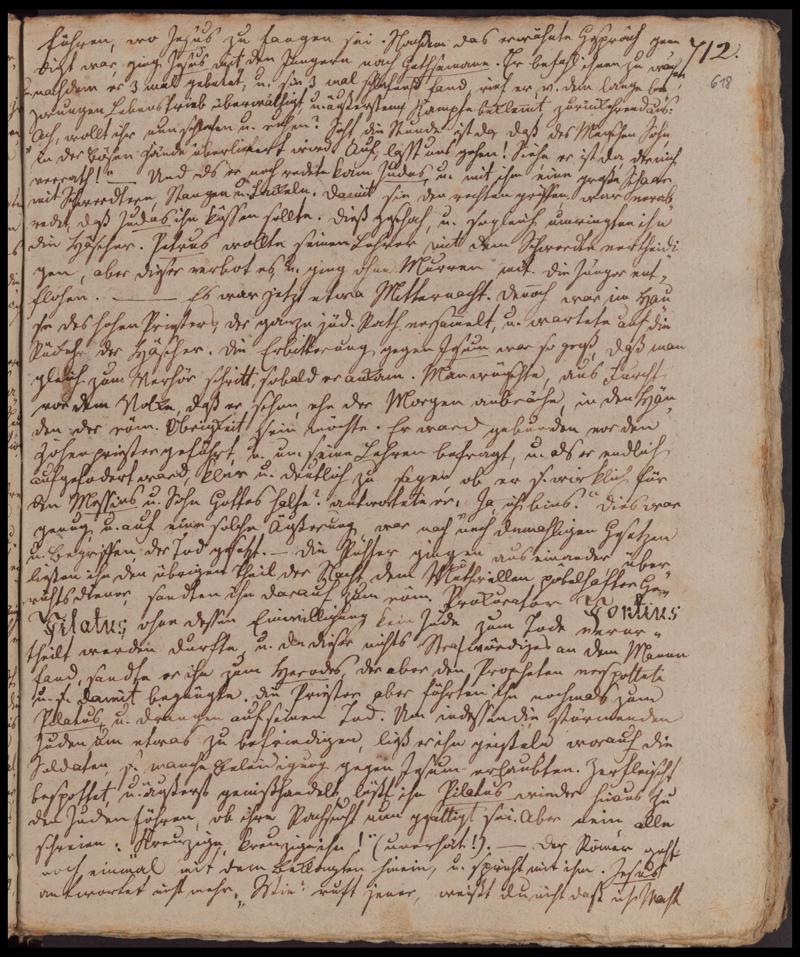 führen, wo Jesus zu fangen sei. Nachdem das erwähnte Gespräch geen
712.
618
digt war, ging Jesus mit den Jüngern nach Gethsemane. Er befahl ihnen zu wachen,
nachdem er 3 mal gebetet, u. sie 3 mal schlafend fand, rief er v. dem lange be
zwungen Lebenstrieb überwältigt, u. äußerstem Kampfe beklemt zurückkehrend aus:
Ach, wollt ihr nun schlafen u. ruhen? Seht, die Stunde ist da, daß des Menschen Sohn
in der Bösen Hände überliefert wird. Auf, laßt uns gehen! Siehe er ist da, der mich
verräth! — Und als er noch redete kam Judas u. mit ihm eine große Schaar
mit Schwerdtern, Stangen u. Fackeln. Damit sie den rechten griffen, war verab
redet, daß Judas ihn küssen sollte. Dieß geschah, u. sogleich umringten ihn
die Häscher. Petrus wollte seinen Lehrer mit dem Schwerdte vertheidi
gen, aber dieser verbot es, u. ging ohne Murren mit. Die Jünger ent„
flohen. — Es war jetzt etwa Mitternacht. Dennoch war im Hau
se des hohen Priesters der ganze jüd. Rath versamelt, u. wartete auf die
Rückkehr der Häscher. Die Erbitterung gegen Jesum war so groß, daß man
gleich zum Verhör schritt, sobald er ankam. Man wünschte, aus Furcht
vor dem Volke, daß er schon, ehe der Morgen anbräche, in den Hän„
den der röm. Obrigkeit sein möchte. Er ward gebunden vor den
Hohenpriester geführt, u. um seine Lehren befragt, u. als er endlich
aufgefodert ward, klar u. deutlich zu sagen ob er s. wirklich für
den Messias u. Sohn Gottes halte? antwortete er: „Ja, ich bins." Dies war
genug, u. auf eine solche Äußerung war nach den damahligen Gesetzen
u. Begriffen der Tod gesetzt. — Die Richter gingen aus einander, über
ließen ihn den übrigen Theil der Nacht dem Muthwillen pöbelhafter Ge„
richtsdiener, sandten ihn darauf zum röm. Prokurator Pontius
Pilatus, ohne dessen Einwilligung kein Jude zum Tode verur„
theilt werden durfte, u. da dieser nichts Strafwürdiges an dem Manne
fand, sandte er ihn zum Herodes, der aber den Propheten verspottete
u. s. damit begnügte. Die Priester aber führten ihn nochmals zum
Pilatus, u. drangen auf seinen Tod. Um indessen die stürmenden
Juden um etwas zu befriedigen, ließ er ihn geisseln worauf die
Soldaten, s. manche Beleidigung gegen Jesum erlaubten. Zerfleischt
bespottet, u. äußerst gemißhandelt, läßt ihn Pilatus wieder hinaus zu
den Juden führen, ob ihre Rachsucht nun gesättigt sei. Aber nein alle
schreien: Kreuzige, kreuzige ihn!" (unerhört!). — Der Römer geht
noch einmal mit dem Beklagten hinein, u. spricht mit ihm. Jesus
antwortet nicht mehr. „Wie? ruft jener, weißt du nicht daß ich Macht